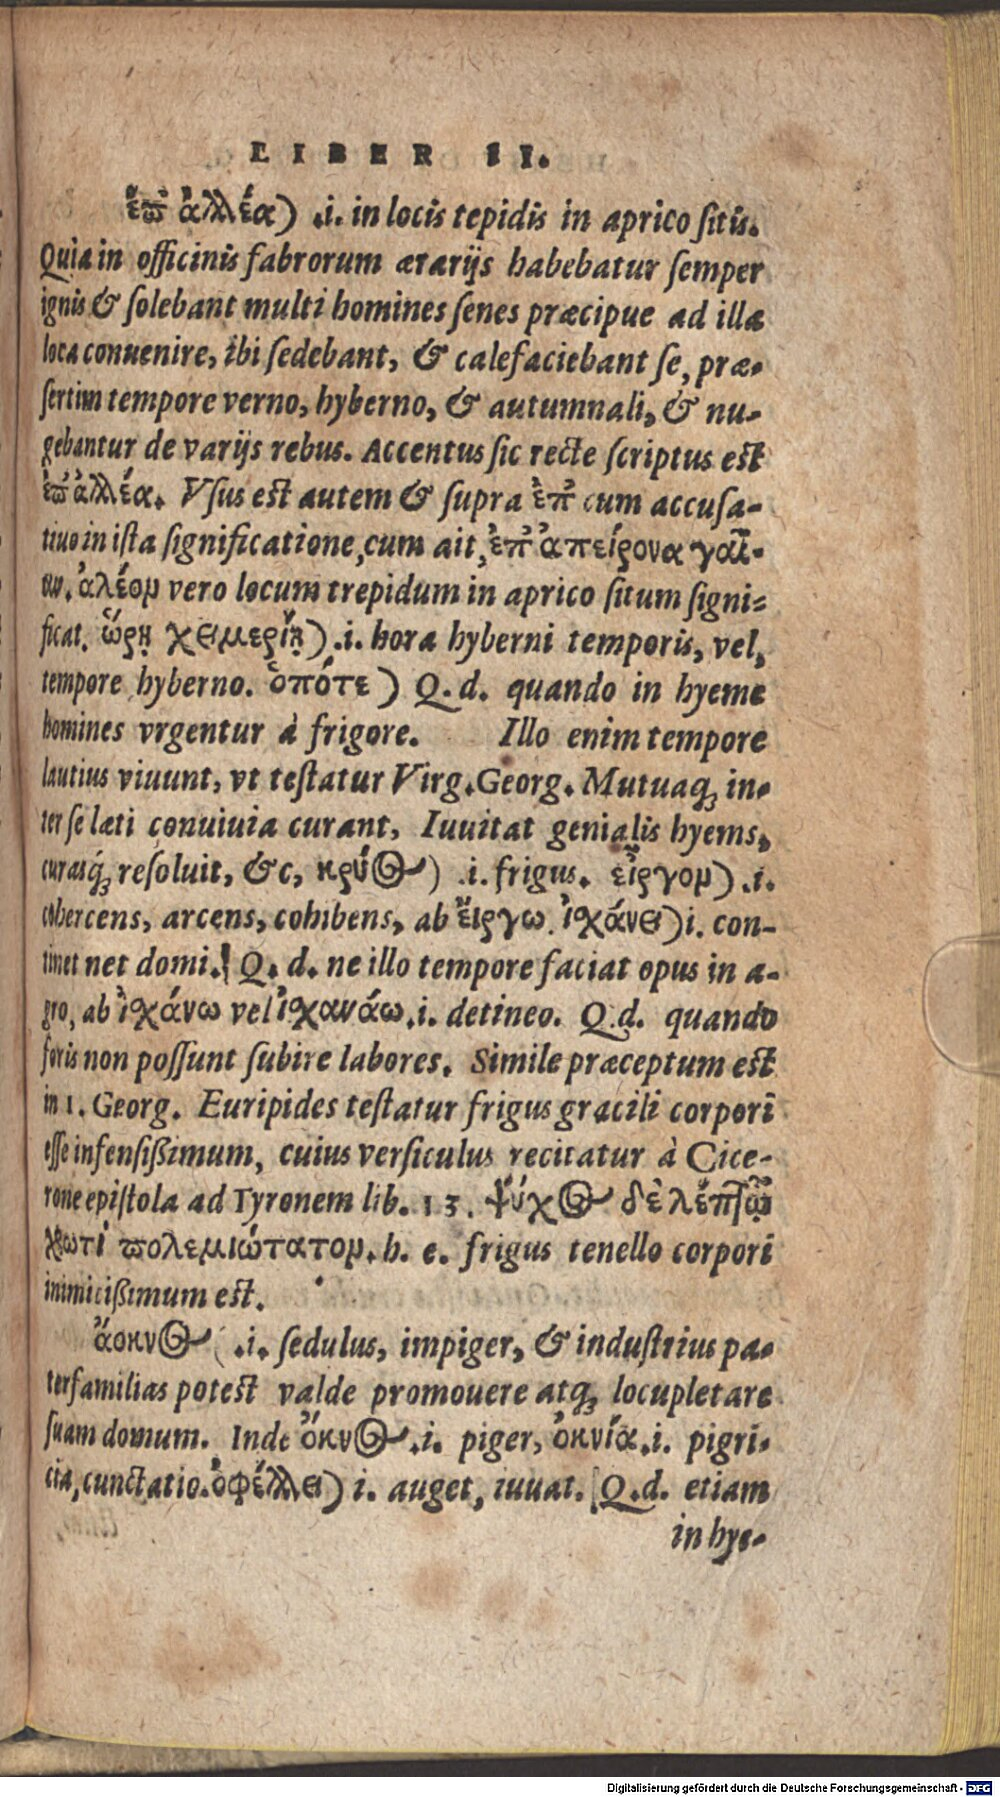 LIBER II.
ἔπ' ἀλλέα) .i. in locis tepidis in aprico sitis.
Quia in officinis fabrorum ærarijs habebatur semper
ignis & solebant multi homines senes præcipue ad illa
loca conuenire, ibi sedebant, & calefaciebant se, præ-
sertim tempore verno, hyberno, & autumnali, & nu-
gebantur de varijs rebus. Accentus sic recte scriptus est
ἐπ' ἀλλέα. Vsus est autem & supra ἐπ' cum accusa-
tiuo in ista significatione, cum ait, ἐπ' ἀπείρονα γαῖ-
αν. ἀλέον vero locum trepidum in aprico situm signi-
ficat. ὥρῃ χειμερίῃ) .i. hora hyberni temporis, vel,
tempore hyberno. ὁπότε) Q. d. quando in hyeme
homines vrgentur à frigore. Illo enim tempore
lautius viuunt, vt testatur Virg. Georg. Mutuaq; in-
ter se læti conuiuia curant, Iuuitat genialis hyems,
curasq́; resoluit, &c, κρύος) .i. frigus. εἰργον) .i.
cohercens, arcens, cohibens, ab εἴργω. ἰσχάνει) i. con-
tinet net domi. Q. d. ne illo tempore faciat opus in a-
gro, ab ἰσχάνω vel ἰσχανάω .i. detineo. Q.d. quando
foris non possunt subire labores. Simile præceptum est
in 1. Georg. Euripides testatur frigus gracili corpori
esse infensißimum, cuius versiculus recitatur à Cice-
rone epistola ad Tyronem lib. 13. ψύχος δὲ λέπτῳ
χρωτὶ πολεμιώτατον. h. e. frigus tenello corpori
inimicißimum est.
ἄοκνος ( .i. sedulus, impiger, & industrius pa-
terfamilias potest valde promouere atq; locupletare
suam domum. Inde ὄκνος .i. piger, ὀκνία .i. pigri-
cia, cunctatio. ὀφέλλει) i. auget, iuuat. Q.d. etiam
in hye-
Digitalisierung gefördert durch die Deutsche Forschungsgemeinschaft - DFG